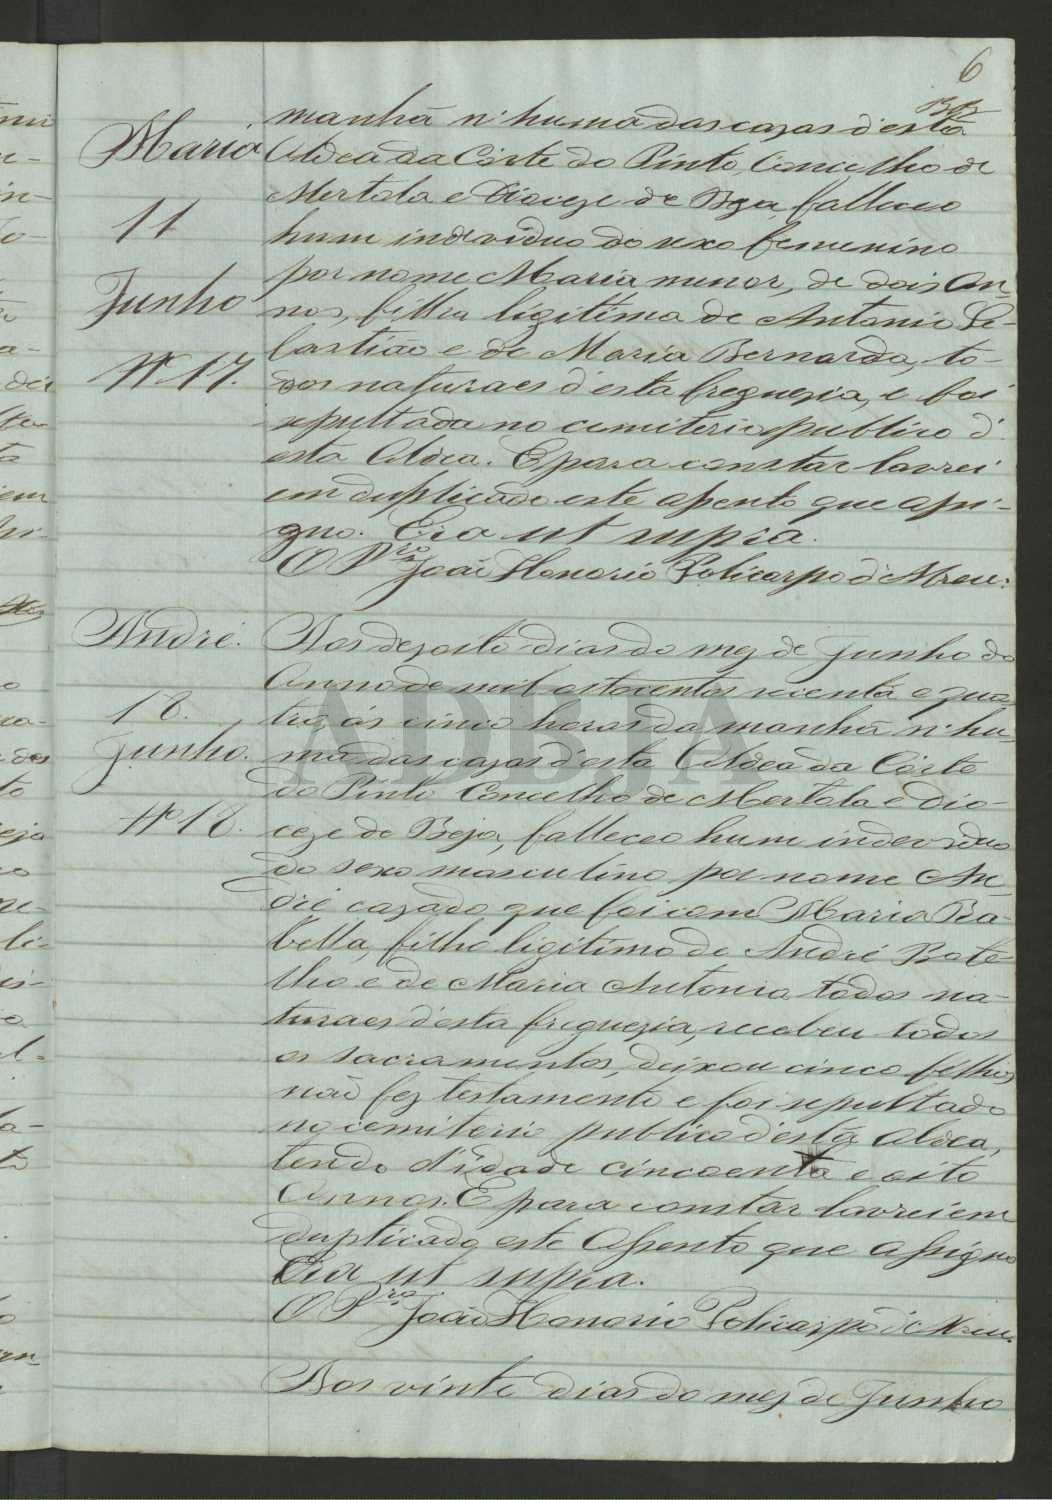 6
Maria
11
Junho
Nº 17.
manhã n'huma das cazas d'esta
Aldea da Côrte do Pinto, Concelho de
Mertola e Dioceze de Beja, falleceo
hum individuo do sexo femenino
por nome Maria menor, de dois An-
nos, filha ligitima de Antonio Se-
bastião e de Maria Bernarda, to-
dos naturaes d'esta freguezia, e foi
sepultada no cemiterio publico d'
esta Aldea. E para constar lavrei
em duplicado este assento que assi-
gno. Era ut supra.
O Prº João Honorio Policarpo d'Abreu.
André.
18.
Junho.
Nº 18.
Aos dezoito dias do mez de Junho do
Anno de mil oitocentos secenta e qua-
tro, ás cinco horas da manhã n'hu-
ma das cazas d'esta Aldea da Côrte
do Pinto Concelho de Mertola e Dio-
ceze de Beja, falleceo hum individuo
do sexo masculino por nome An-
dré cazado que foi com Maria Ba-
bella, filho ligitimo de André Bote-
lho e de Maria Antonia todos na-
turaes d'esta freguezia, recebeu todos
os sacramentos, deixou cinco filhos
não fez testamento e foi sepultado
no cemiterio publico d'esta Aldea,
tendo d'idade cincoenta e oito
Annos. E para constar lavrei em
duplicado este Assento que assigno
Era ut supra.
O Prº João Honorio Policarpo d'Abreu.
Aos vinte dias do mez de Junho
ADBJA